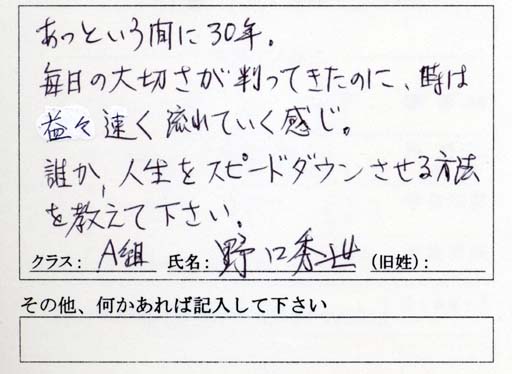 あっという間に30年。
毎日の大切さが判ってきたのに、時は
益々速く流れていく感じ。
誰か、人生をスピードダウンさせる方法
を教えて下さい。
クラス： A組 氏名： 野口秀世 （旧姓）：
その他、何かあれば記入して下さい